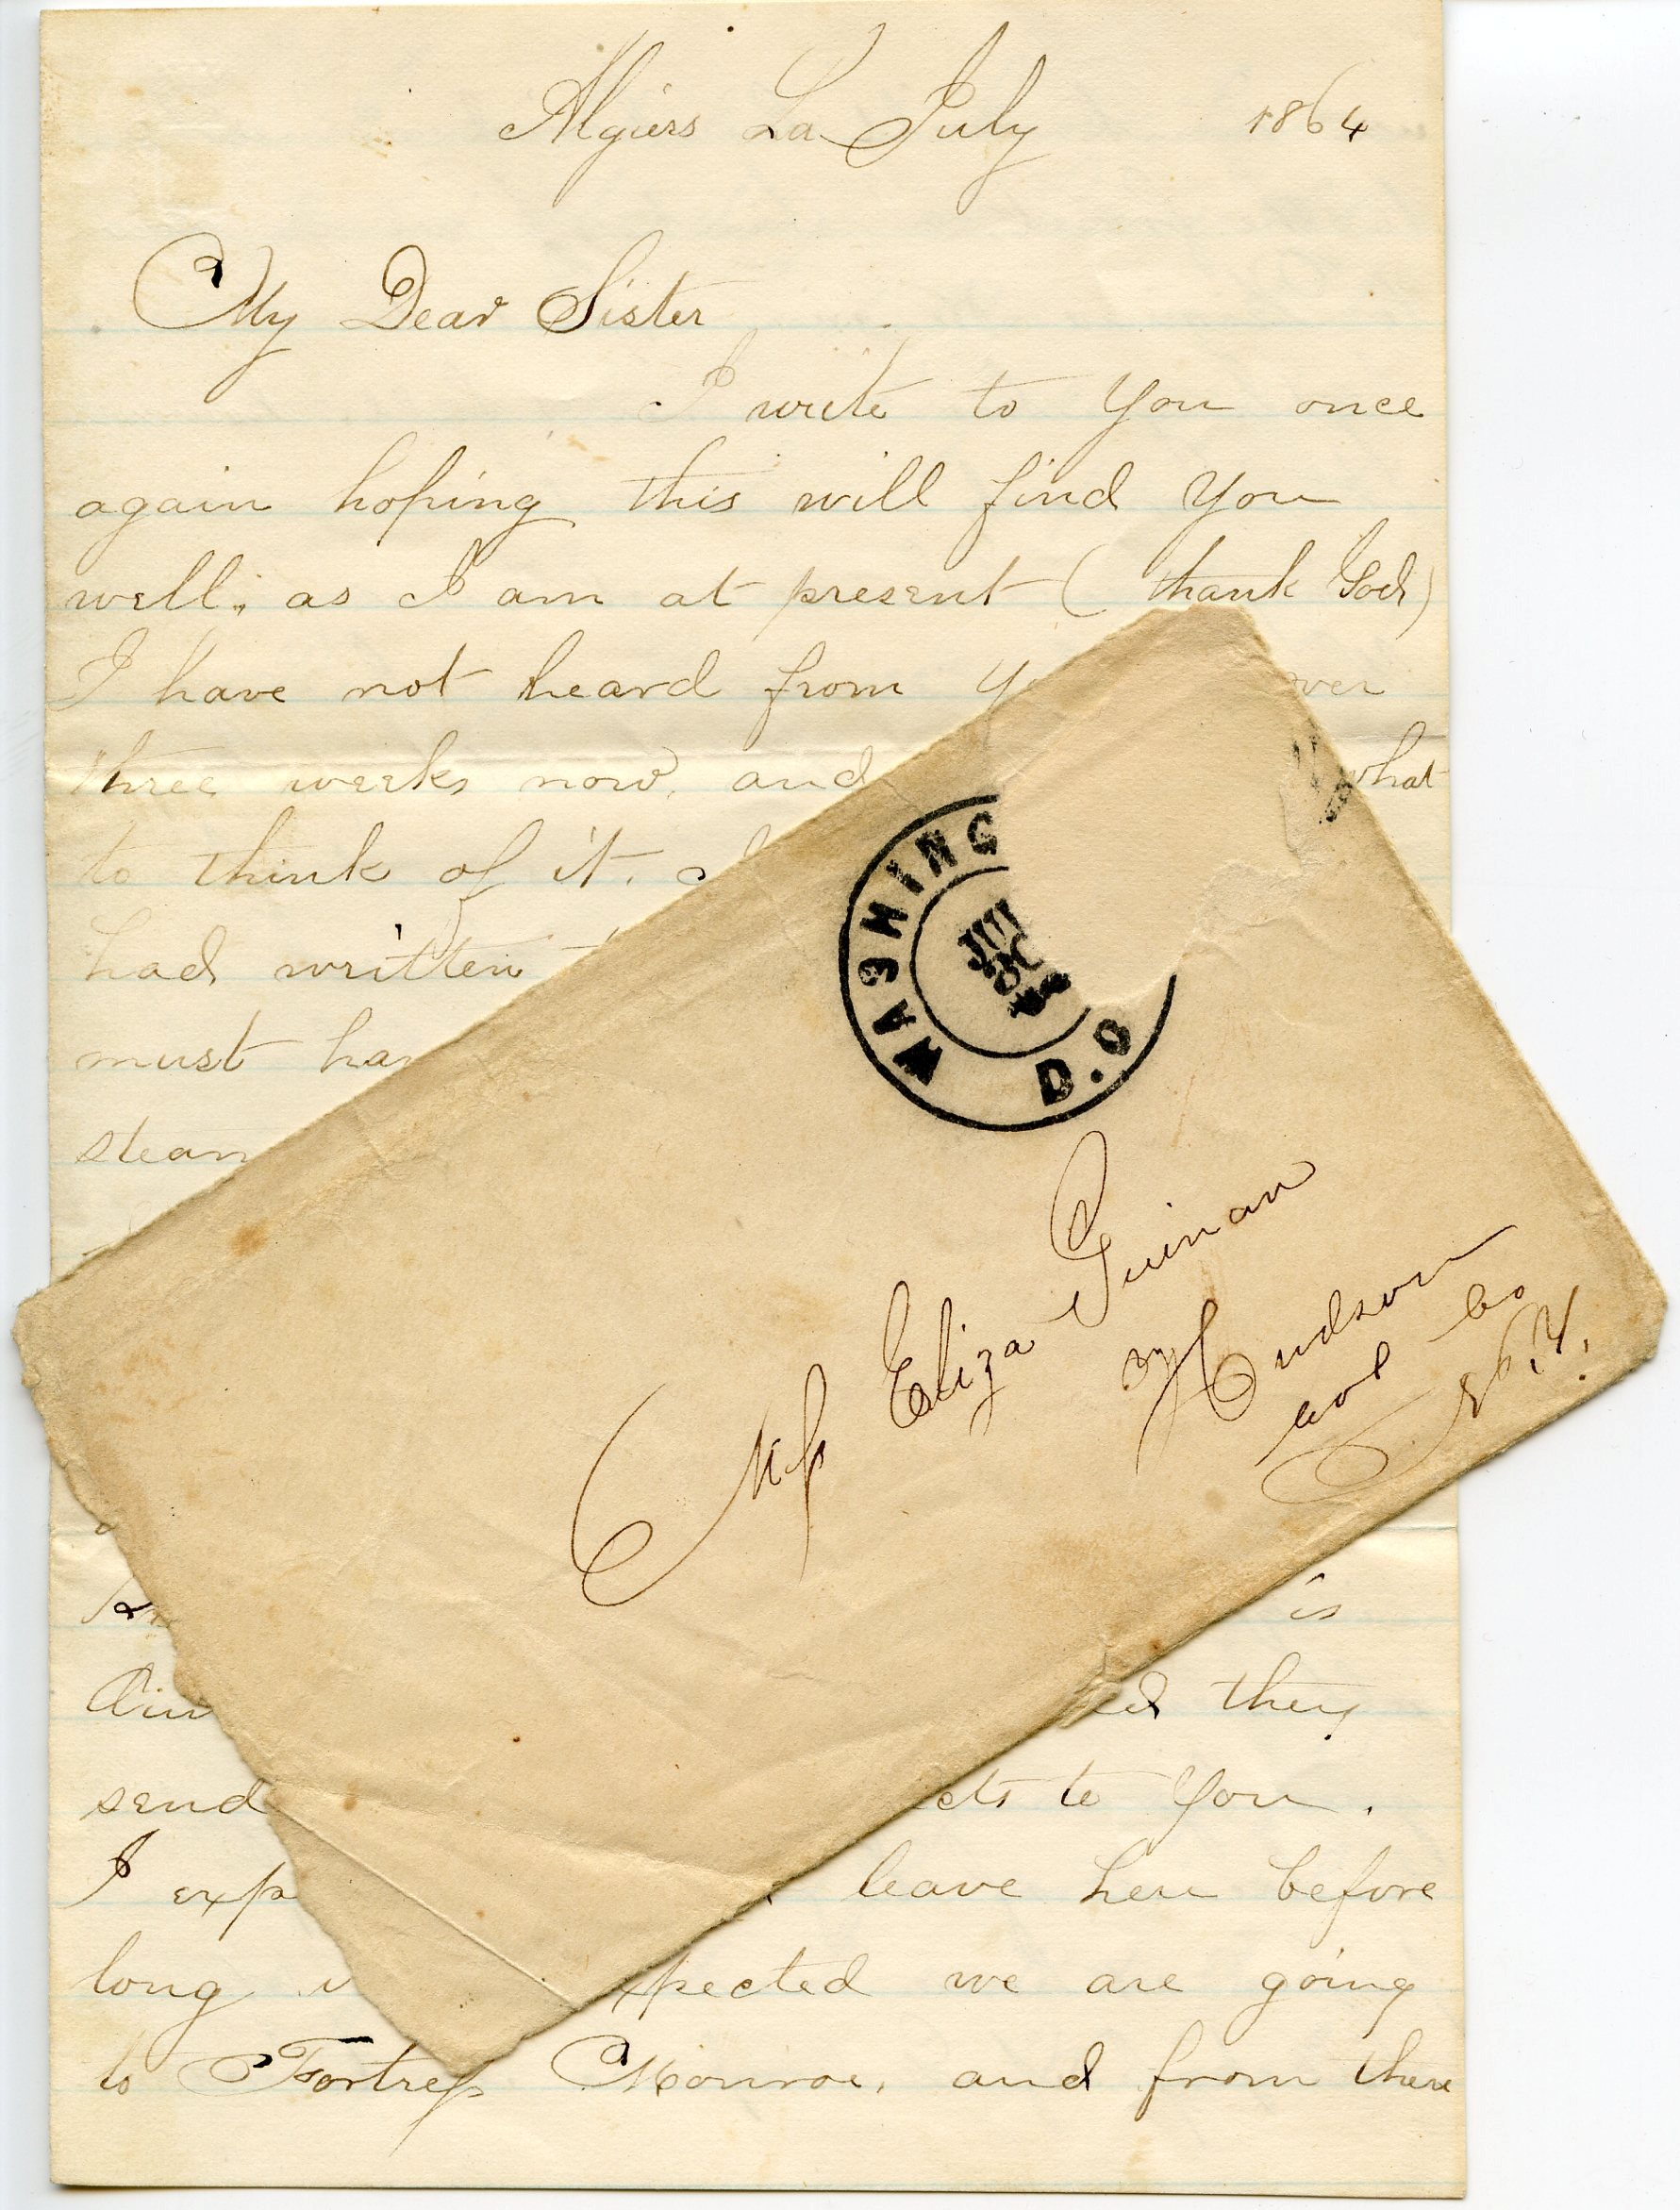 Algiers La July 1864
My Dear Sister
I write to you once
again hoping this will find you
well, as I am at present (thank God)
I have not heard from yo ver
three weeks now, and what
to think of it. I
had written t
must hav
steam
is
ed they
send ects to you.
I exp leave here before
long pected we are going
to Fortress Monroe, and from there
WASHING
D.C
JUL
Miss Eliza Guinan
Hudson
Col Co
N.Y.